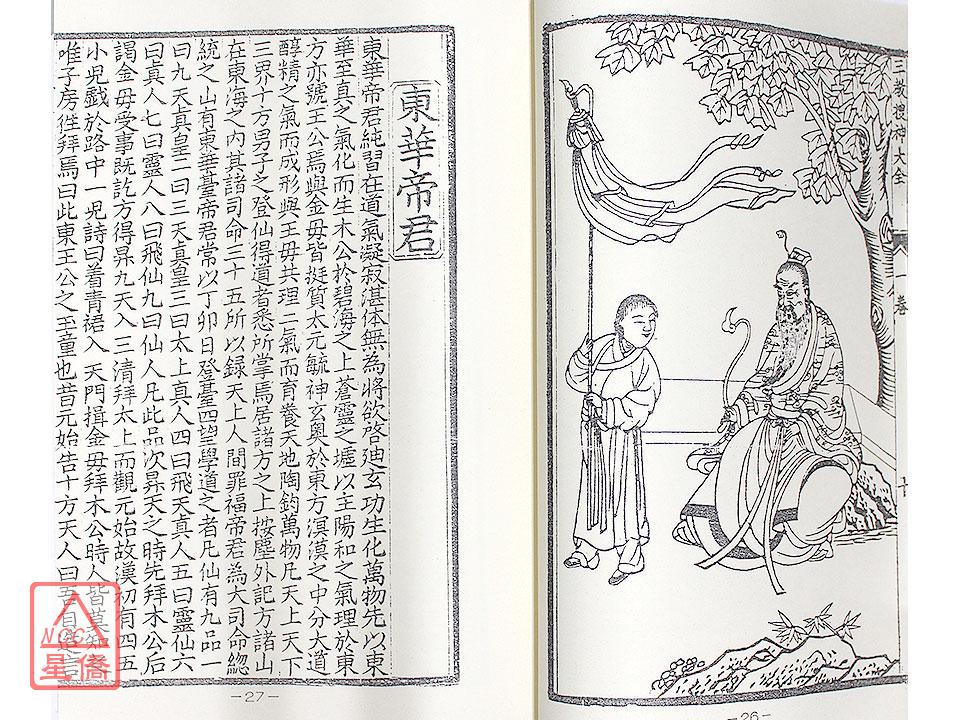 三教搜神大全
一卷
十
-26-
東華帝君
東華帝君純習在道氣凝寂湛体無為將欲啓迪玄功生化萬物先以東
華至真之氣化而生木公於碧海之上蒼靈之墟以主陽和之氣理於東
方亦號王公焉與金母皆挺質太元毓神玄奧於東方溟漠之中分大道
醇精之氣而成形與王母共理二氣而育養天地陶鈞萬物凡天上天下
三界十方男子之登仙得道者悉所掌焉居諸方之上按塵外記方諸山
在東海之内其諸司命三十五所以録天上人間罪福帝君為大司命總
統之山有東華臺帝君常以丁卯日登臺四望學道之者凡仙有九品一
曰九天真皇二曰三天真皇三曰太上真人四曰飛天真人五曰靈仙六
曰真人七曰靈人八曰飛仙九曰仙人凡此品次昇天之時先拜木公后
謁金母受事既訖方得昇九天入三清拜太上而觀元始故漢初有四五
小児戯於路中一児詩曰着青裙入天門揖金母拜木公時人皆莫知
唯子房徃拜焉曰此東王公之玉童也昔元始告十方天人曰吾自造言
-27-
NCC
星僑